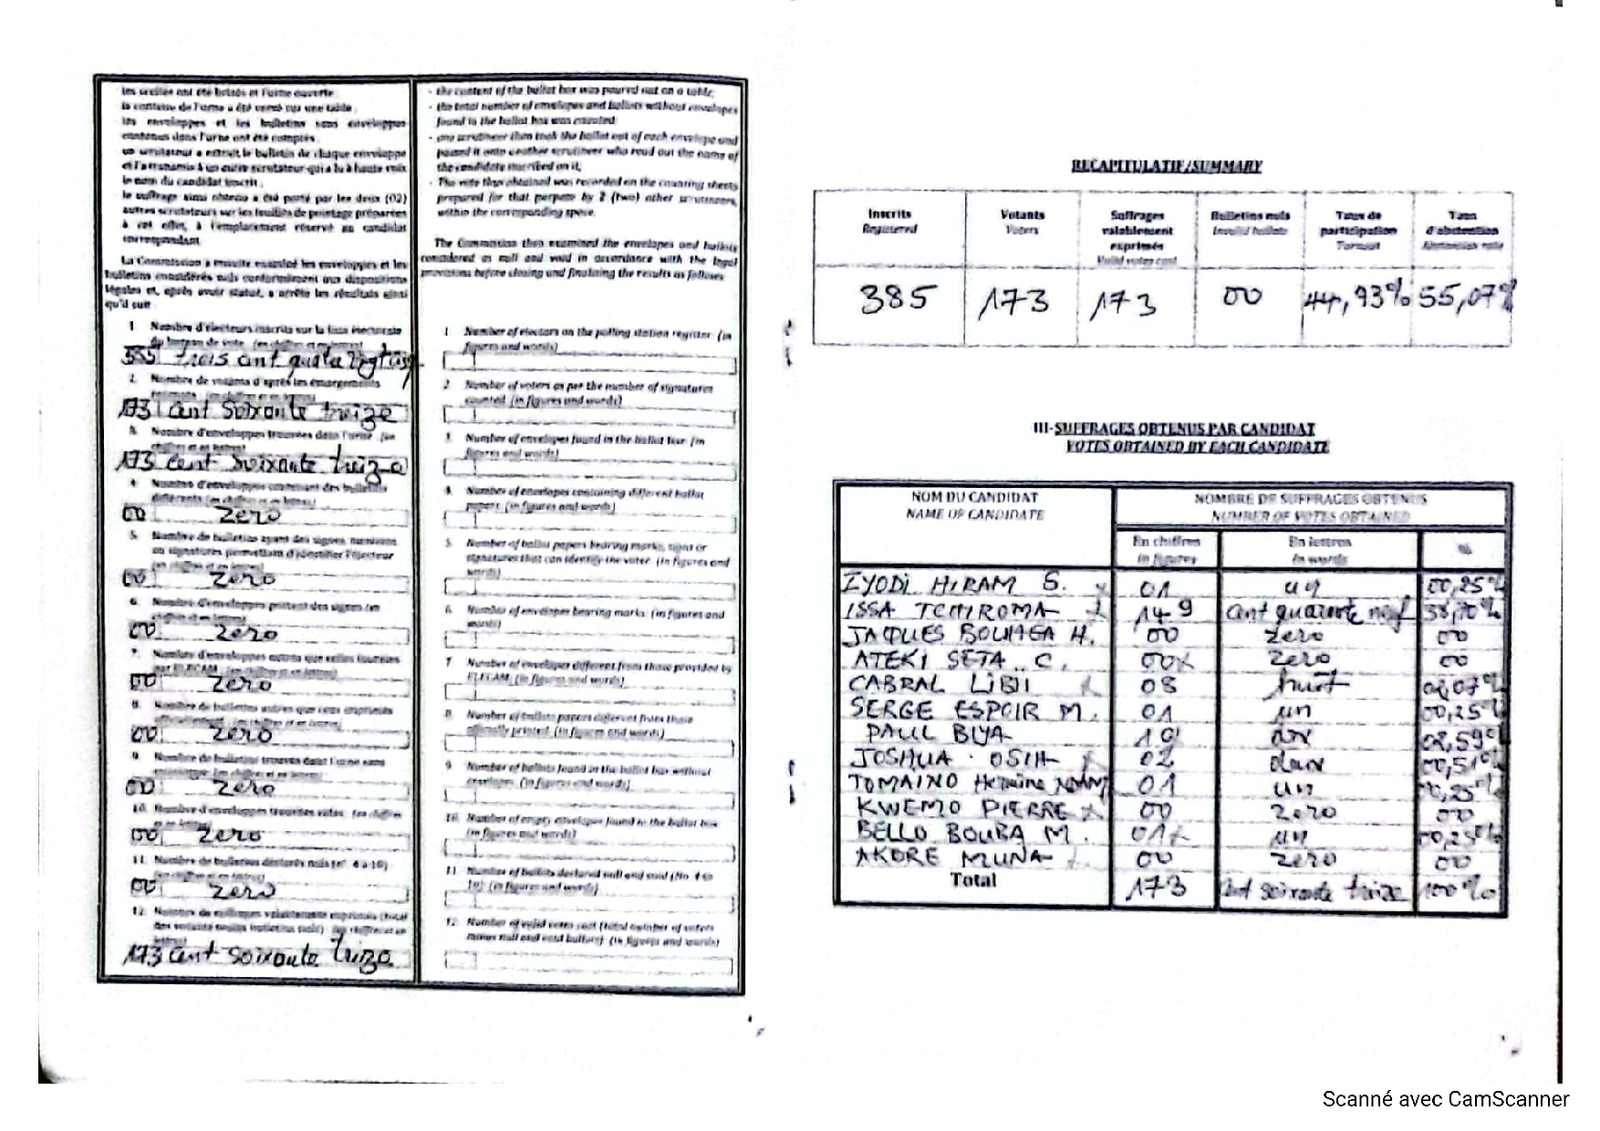 les scellés ont été brisés et l'urne ouverte
le contenu de l'urne a été versé sur une table ;
les enveloppes et les bulletins sans enveloppes
contenus dans l'urne ont été comptés ;
un scrutateur a extrait le bulletin de chaque enveloppe
et l'a transmis à un autre scrutateur qui a lu à haute voix
le nom du candidat inscrit ;
le suffrage ainsi obtenu a été porté par les deux (02)
autres scrutateurs sur les feuilles de pointage préparées
à cet effet, à l'emplacement réservé au candidat
correspondant.
La Commission a ensuite examiné les enveloppes et les
bulletins considérés nuls conformément aux dispositions
légales et, après avoir statué, a arrêté les résultats ainsi
qu'il suit :
1. Nombre d'électeurs inscrits sur la liste électorale
du bureau de vote. (en chiffres et en lettres)
385 trois cent quatre
2. Nombre de votants d'après les émargements
173 cent soixante treize
3. Nombre d'enveloppes trouvées dans l'urne. (en
173 cent soixante treize
4. Nombre d'enveloppes contenant des bulletins
différents (en chiffres et en lettres)
00 zero
5. Nombre de bulletins ayant des signes, mentions
ou signatures permettant d'identifier l'électeur
(en chiffres et en lettres)
00 zero
6. Nombre d'enveloppes portant des signes (en
00 zero
7. Nombre d'enveloppes autres que celles fournies
par ELECAM. (en chiffres et en lettres)
00 zero
8. Nombre de bulletins autres que ceux imprimés
officiellement. (en chiffres et en lettres)
00 zero
9. Nombre de bulletins trouvés dans l'urne sans
00 zero
10. Nombre d'enveloppes trouvées vides. (en chiffres
00 zero
11. Nombre de bulletins déclarés nuls (n° 4 à 10)
(en chiffres et en lettres)
00 zero
12. Nombre de suffrages valablement exprimés (total
des votants moins bulletins nuls). (en chiffres et en
173 cent soixante treize
- the content of the ballot box was poured out on a table;
- the total number of envelopes and ballots without envelopes
found in the ballot box was counted;
- one scrutineer then took the ballot out of each envelope and
passed it onto another scrutineer who read out the name of
the candidate inscribed on it;
- The vote thus obtained was recorded on the counting sheets
prepared for that purpose by 2 (two) other scrutineers,
within the corresponding space.
The Commission then examined the envelopes and ballots
considered as null and void in accordance with the legal
provisions before closing and finalizing the results as follows:
1. Number of electors on the polling station register. (in
figures and words)
2. Number of voters as per the number of signatures
counted. (in figures and words)
3. Number of envelopes found in the ballot box. (in
figures and words)
4. Number of envelopes containing different ballot
papers. (in figures and words)
5. Number of ballot papers bearing marks, signs or
signatures that can identify the voter. (in figures and
words)
6. Number of envelopes bearing marks. (in figures and
words)
7. Number of envelopes different from those provided by
ELECAM. (in figures and words)
8. Number of ballots papers different from those
officially printed. (in figures and words)
9. Number of ballots found in the ballot box without
envelopes. (in figures and words)
10. Number of empty envelopes found in the ballot box
(in figures and words)
11. Number of ballots declared null and void (No. 4 to
10). (in figures and words)
12. Number of valid votes cast (total number of voters
minus null and void ballots). (in figures and words)
RECAPITULATIF/SUMMARY
Inscrits
Registered
Votants
Voters
Suffrages
valablement
exprimés
Valid votes cast
Bulletins nuls
Invalid ballots
Taux de
participation
Turnout
Taux
d'abstention
Abstention rate
385 173 173 00 44,93% 55,07%
III-SUFFRAGES OBTENUS PAR CANDIDAT
VOTES OBTAINED BY EACH CANDIDATE
NOM DU CANDIDAT
NAME OF CANDIDATE
NOMBRE DE SUFFRAGES OBTENUS
NUMBER OF VOTES OBTAINED
En chiffres
in figures
En lettres
in words
%
IYODI HIRAM S. 01 un 00,25%
ISSA TCHIROMA 149 cent quarante neuf 38,70%
JAQUES BOUHAGA H. 00 zero 00
ATEKI SETA C. 00 zero 00
CABRAL LIBII 08 huit 02,07%
SERGE ESPOIR M. 01 un 00,25%
PAUL BIYA 10 dix 02,59%
JOSHUA OSIH 02 deux 00,51%
TOMAINO Hermine NDAM 01 un 00,25%
KWEMO PIERRE 00 zero 00
BELLO BOUBA M. 01 un 00,25%
AKORE MUNA 00 zero 00
Total 173 cent soixante treize 100%
Scanné avec CamScanner